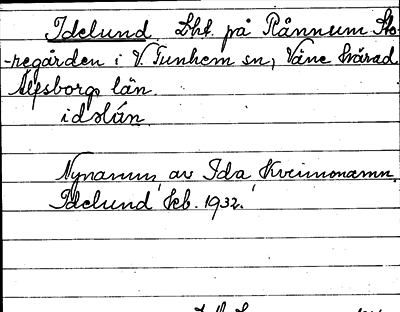 Idelund. Lht. på Rånnum Sto-
-regården i V. Tunhem sn, Väne härad
Älfsborgs län.
idəlún
Nynamn av Ida Kvinnonamn.
Idelund feb. 1932.